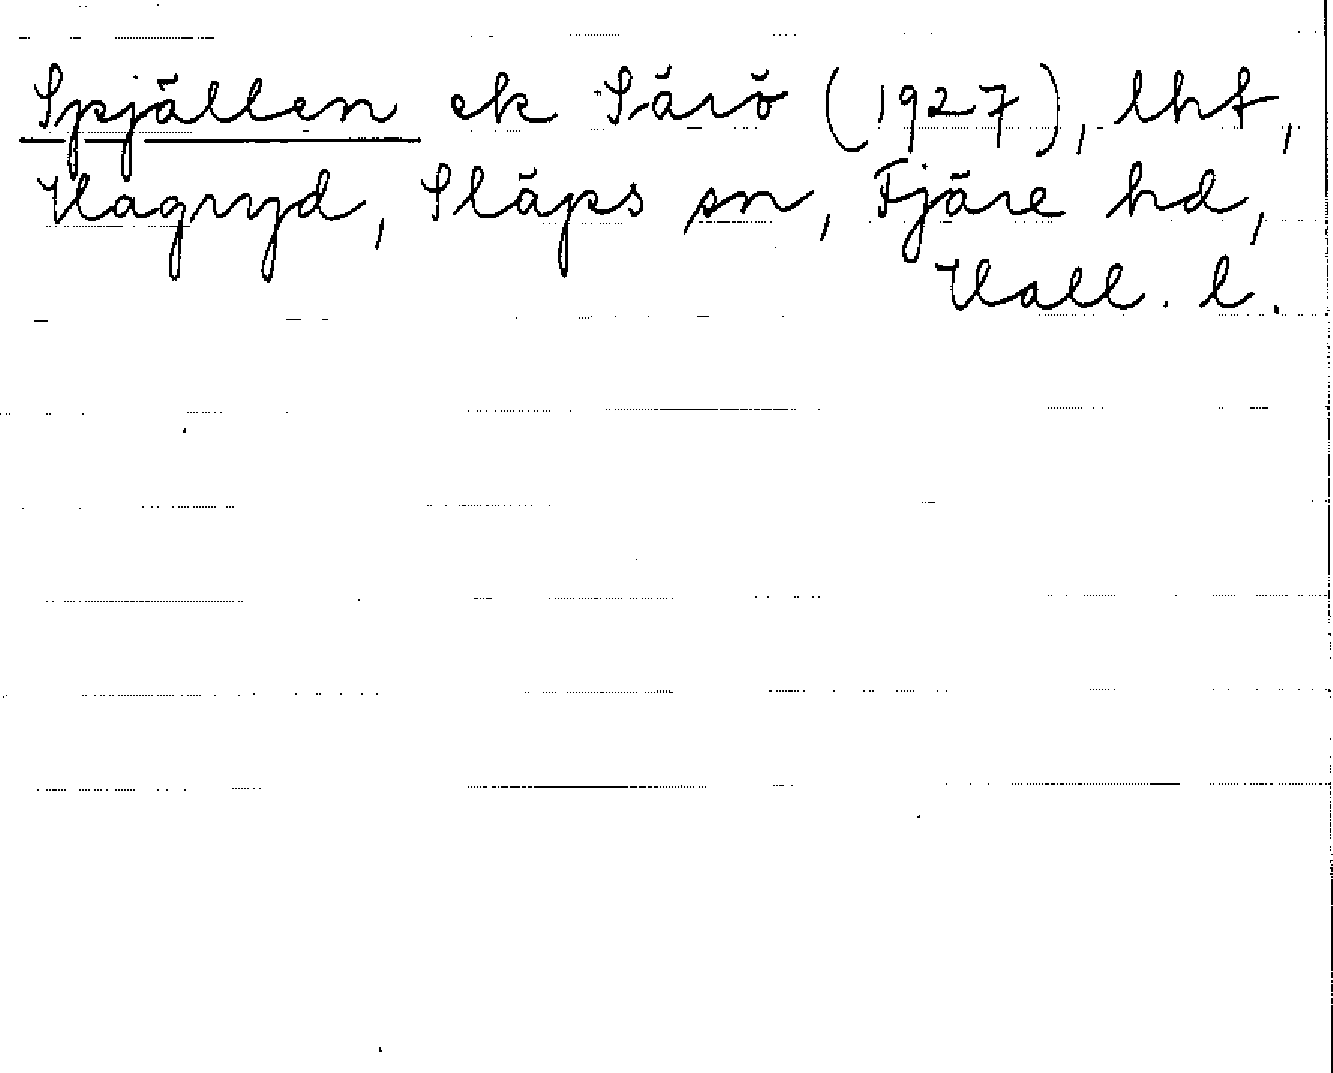 Spjällen ek Särö (1927), lht,
Hagryd, Släps sn, Fjäre hd,
Hall. l.